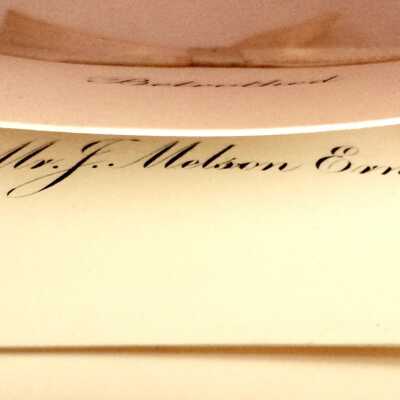 Betrothed
Mr. J. Molson Ern